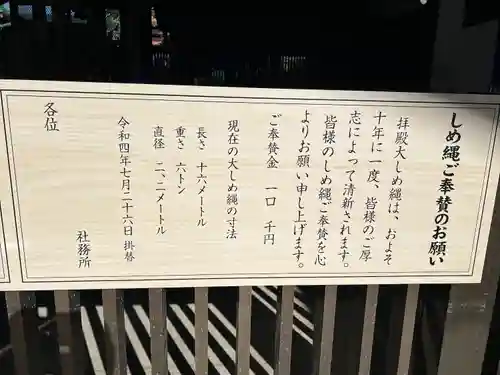 しめ縄ご奉賛のお願い
拝殿大しめ縄は、およそ
十年に一度、皆様のご厚
志によって清新されます。
皆様のしめ縄ご奉賛を心
よりお願い申し上げます。
ご奉賛金　一口　千円
現在の大しめ縄の寸法
長さ　十六メートル
重さ　六トン
直径　二、二メートル
令和四年七月二十六日　掛替
社務所
各位